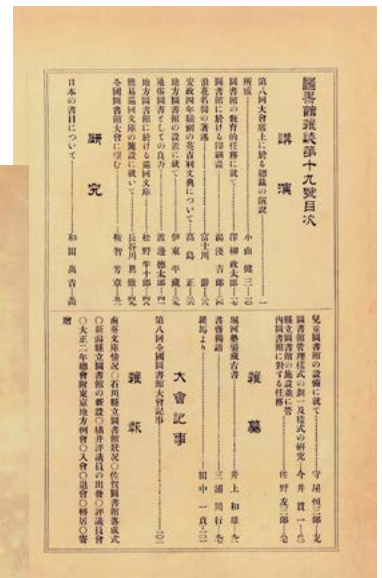 圖書館雜誌第十九號目次
講演
第八回大會席上に於る總裁の演說
所感 小山健三
圖書館の敎育的任務に就て 澤柳政太郎
圖書館に於ける印刷術 湯淺吉郎
浪花名園の著述 富士川游
安政四年版刻の英吉利文典について 高島正
地方圖書館の設置に就て 伊東平藏
通俗圖書としての良書 渡邊德太郎
地方圖書館に於ける巡回文庫 松野隼十郎
簡易巡回文庫の施設に就いて 長谷川
全國圖書館大會に望む 桜智芳章
硏究
日本の書目について 和田萬吉
兒童圖書館の設備に就て 守屋恒三郎
圖書館管理樣式の劃一及樣式の硏究 今井貫一
縣立圖書館の施設並に管內圖書館に對する任務 佐野友三郎
雜纂
堀河塾舊藏古書 井上和雄
書齋偶語 三浦周行
羅馬より 田中一貞
大會記事
第八回全國圖書館大會記事
雜報
南葵文庫情況〇石川縣立圖書館狀況〇佐賀圖書館落成式
〇新潟縣立圖書館の新設〇橘井評議員の出發〇評議員會
〇大正二年總會附東京地方例會〇入會〇退會〇轉居〇寄
贈